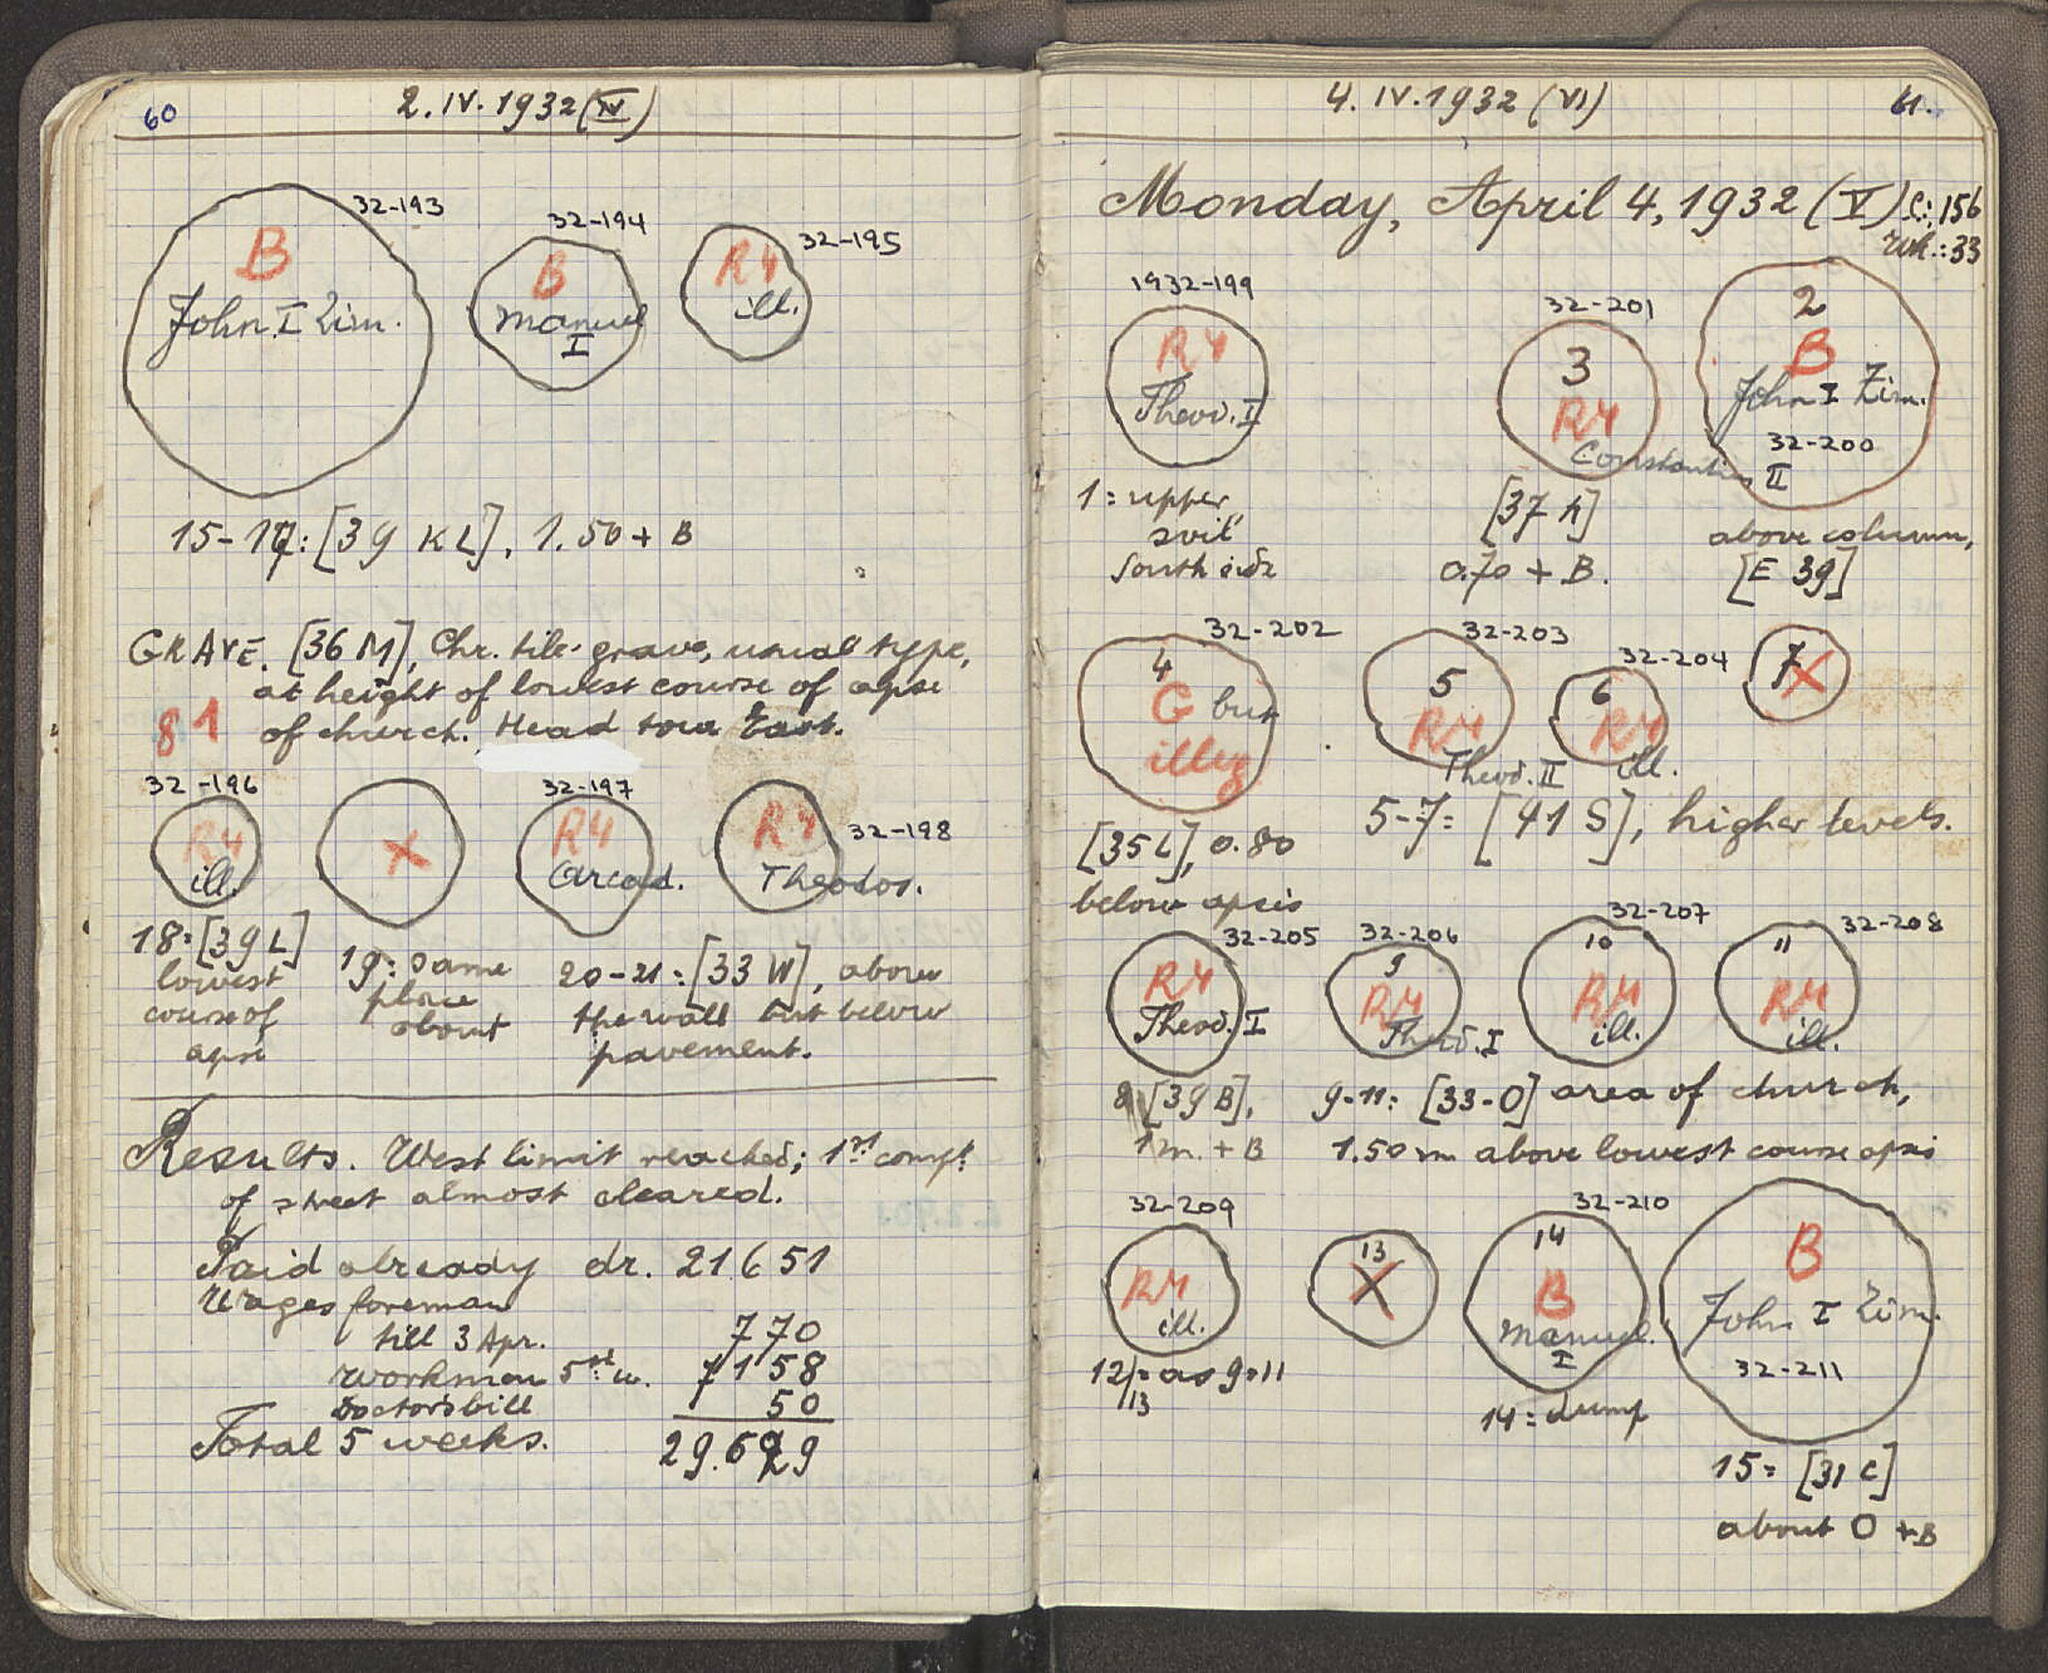 60
2. IV. 1932 (IV)
32-193
B
John I Zim.
32-194
B
Manuel
I
32-195
R4
ill.
15-17: [39 KL], 1.50 + B
GRAVE. [36 M], Chr. tile-grave, usual type,
at height of lowest course of apse
81
of church. Head tow East.
32-196
R4
ill.
X
32-197
R4
Arcad.
32-198
R4
Theodos.
18=[39 L]
lowest
course of
apse
19: same
place
about
20-21: [33 W], above
the wall but below
pavement.
Results. West limit reached; 1st compt
of street almost cleared.
Paid already dr. 21651
Wages foreman
till 3 Apr. 770
workmen 5st w. 7158
Doctorsbill 50
Total 5 weeks. 29.629
4. IV. 1932 (VI)
61.
Monday, April 4, 1932 (V) C:, 156
wk.: 33
1932-199
R4
Theod. I
1 = upper
soil
South side
32-201
3
R4
Constantius II
[37 h]
0.70 + B.
2
B
John I Zim.
32-200
above column,
[E 39]
32-202
4
G but
illeg
[35 L], 0.80
below apsis
32-203
5
R4
Theod. II
32-204
6
R4
ill.
7
X
5-7= [41 S], higher levels.
32-205
R4
Theod. I
8 [39 B],
1 m. + B
32-206
9
R4
Theod. I
32-207
10
R4
ill.
32-208
11
R4
ill.
9-11: [33-O] area of church,
1.50 m above lowest course apsis
32-209
R4
ill.
12/13 = as 9-11
13
X
32-210
14
B
Manuel.
I
14 = dump
B
John I Zim.
32-211
15 = [31 C]
about 0 + B